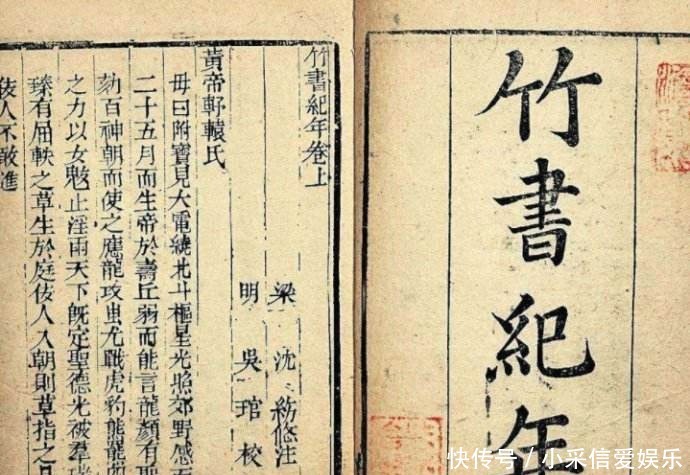 竹書紀年
竹書紀年卷上
梁 沈 注
明 吳 琯 校
黃帝軒轅氏
母曰附寶見大電繞北斗樞星光照郊野感
二十五月而生帝於壽丘弱而能言龍顏有聖
劾百神朝而使之應龍攻蚩尤戰虎豹熊羆
之力以女魃止淫雨天下既定聖德光被羣
臻有屈軼之草生於庭佞人入朝則草指之
佞人不敢進
快传号 / 小采信爱娱乐